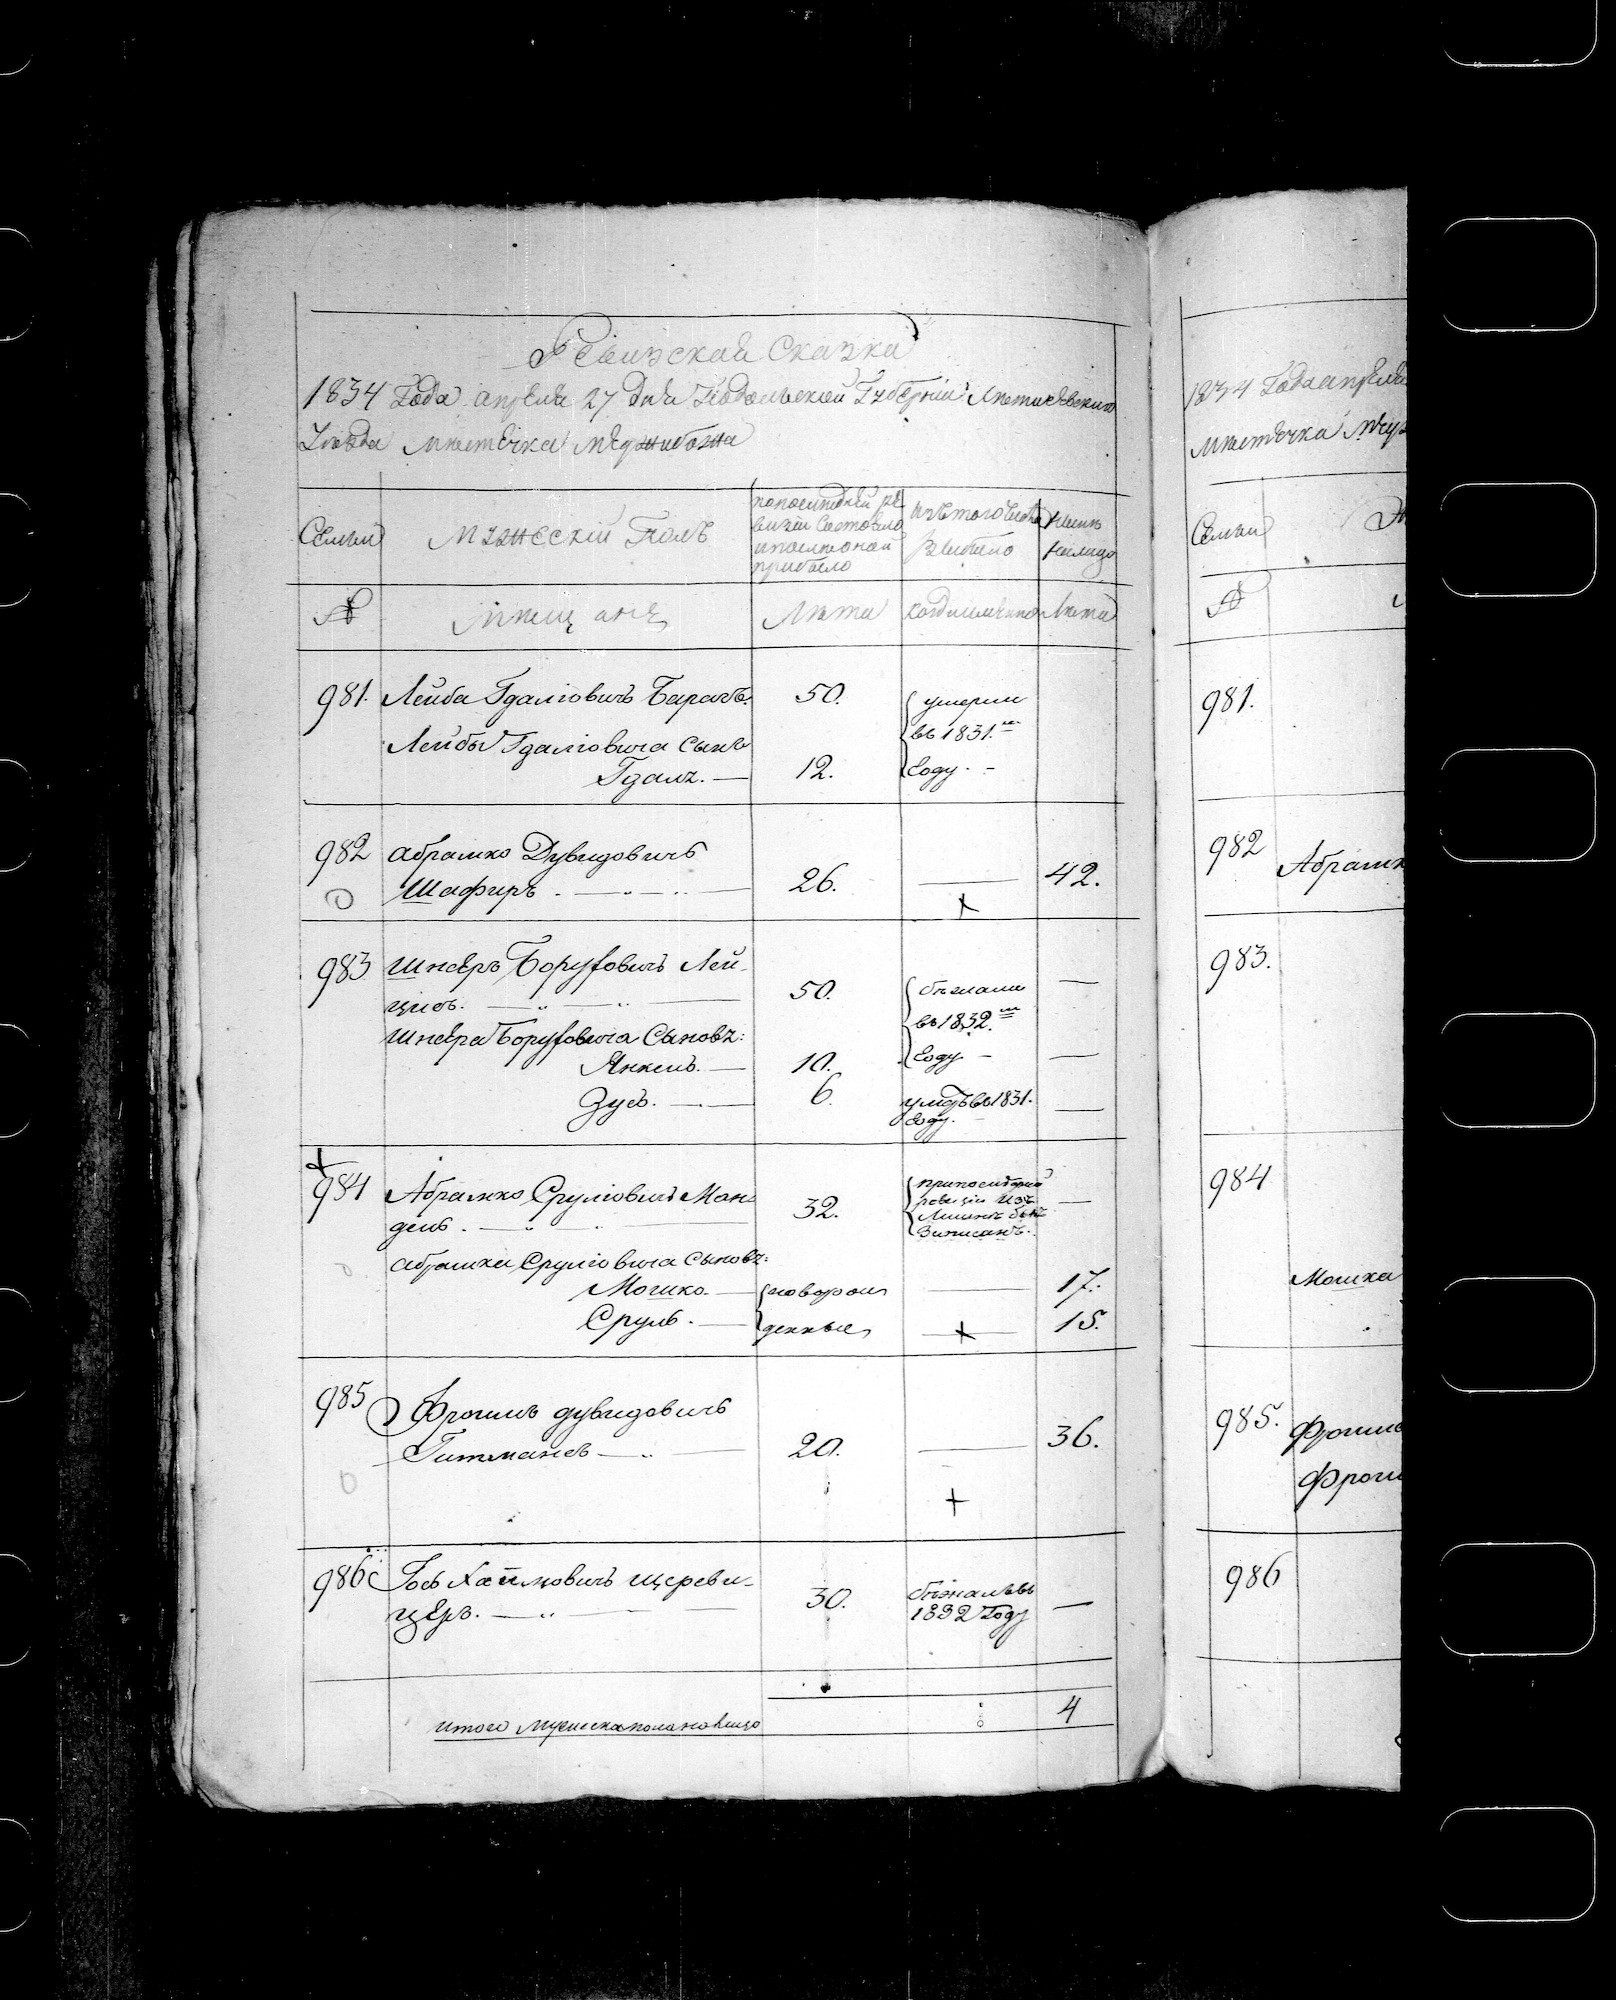 Ревизская Сказка
1834 Года апреля 27 дня Подольской Губернии Летичевскаго
Уезда Местечка Меджибожа
Семьи
Мужеский Полъ
по последней ре
визии состояло
и после оной
прибыло
изъ того числа
выбыло
Ныне
на лицо
№
Мещане
Лета
Лета
981. Лейба Гдалiовичъ Барачъ. 50. умерли
въ 1831.м
Лейбы Гдалiовича сынъ
Гдаль. — 12. году. -
982 Абрамко Дувидовичъ
Шафиръ. — 26. — 42.
983 Шнеяръ Боруховичъ Лей-
цис. — 50. бежали —
въ 1832.м
Шнеяра Боруховича Сыновъ:
Янкель. — 10. году — —
Зусь. — 6. умеръ въ 1831.
году. —
984 Абрамко Срулiовичъ Ман-
дель. — 32. —
записанъ.
Абрамка Срулiовича Сыновъ:
Мошко. — новорож — 17.
Сруль. — денные — 15.
985 Фроимъ Дувидовичъ
Гитманъ — 20. — 36.
986 Iось Хаимовичъ Щереви-
церъ. — 30. бежалъ въ
1832 Году —
Итого мужеска пола на лицо 4
1834 Года апреля
Местечка Медж
Семьи
№
981.
982 Абрамк
983.
984
Мошка
985. Фроимъ
Фроим
986